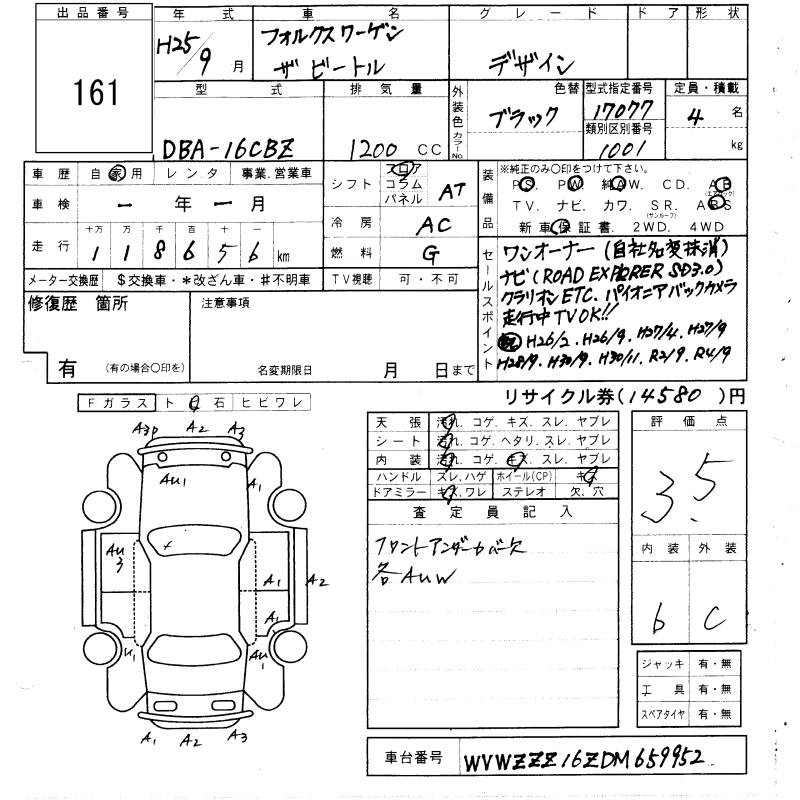 出品番号 年式 車名 グレード ドア 形状
161 H25/9月 フォルクスワーゲン ザ ビートル デザイン
型式 排気量 外装色 カラーNo. 色替 型式指定番号 定員・積載
DBA-16CBZ 1200CC ブラック 17077 4名
類別区別番号 1001 kg
車歴 自家用 レンタ 事業.営業車
車検 ー年ー月
走行 十万 万 千 百 十 一
118656km
メーター交換歴 $交換車・*改ざん車・#不明車
シフト フロア コラム パネル AT
冷房 AC
燃料 G
TV視聴 可・不可
装備品 ※純正のみ〇印をつけて下さい。
PS. PW. 純AW. CD. AB(エアバック)
TV. ナビ. カワ. SR.(サンルーフ) ABS
新車保証書. 2WD. 4WD
セールスポイント ワンオーナー(自社名変抹消)
ナビ(ROAD EXPLORER SD3.0)
クラリオンETC. パイオニアバックカメラ
走行中TVOK!!
記 H26/2. H26/9. H27/4. H27/9
H28/9. H30/9. H30/11. R2/9. R4/9
修復歴 箇所 注意事項
有 (有の場合〇印を) 名変期限日 月 日まで
リサイクル券(14580)円
Fガラス ト 石 ヒビワレ
A3P A2 A3
AU1 A1
AU3
A1 A2
A1
U1 AU1
A1 A2 A3
天張 汚れ. コゲ. キズ. スレ. ヤブレ
シート 汚れ. コゲ. ヘタリ. スレ. ヤブレ
内装 汚れ. コゲ. キズ. スレ. ヤブレ
ハンドル スレ. ハゲ ホイール(CP) キズ
ドアミラー キズ. ワレ ステレオ 欠. 穴
査定員記入
フロントアンダーカバー欠
各AUW
評価点
3.5
内装 外装
b C
ジャッキ 有・無
工具 有・無
スペアタイヤ 有・無
車台番号 WVWZZZ16ZDM659952